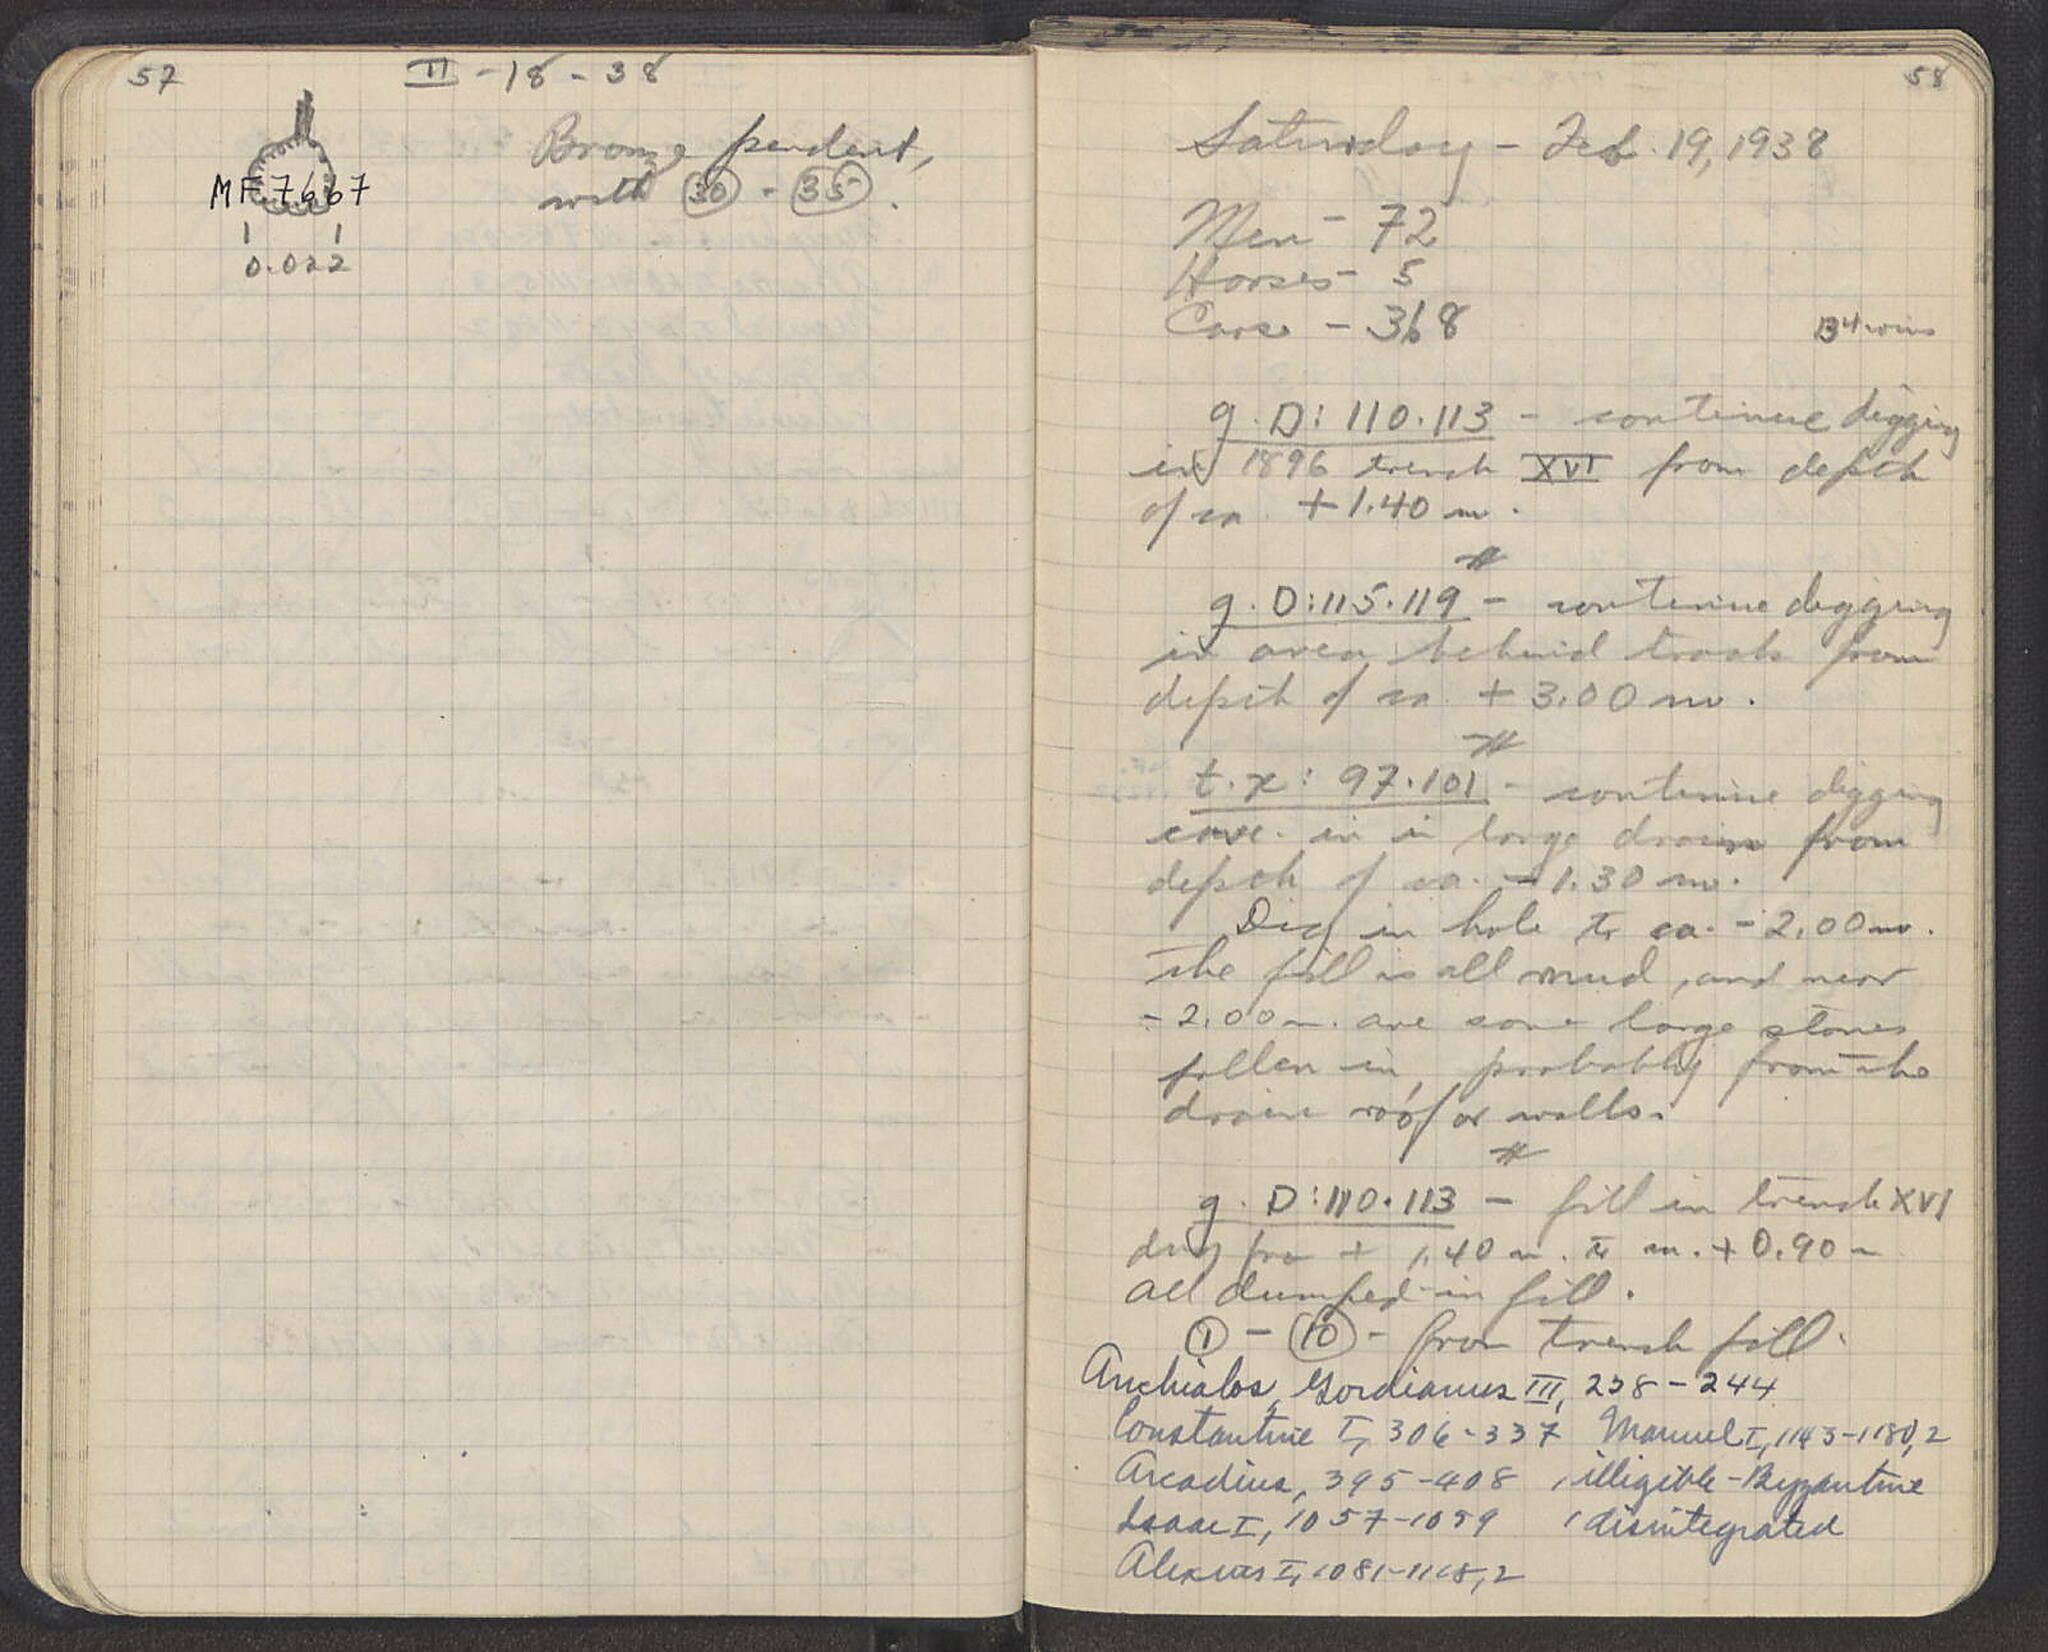 57
II - 18 - 38
Bronze pendent,
with 30 - 35.
MF 7667
0.022
58
Saturday - Feb. 19, 1938
Men - 72
Horses - 5
Cars - 368
134 coins
g. D: 110.113 - continue digging
in 1896 trench XVI from depth
of ca. +1.40 m.
#
g. D:115.119 - continue digging
in area behind track from
depth of ca. +3.00 m.
#
t. x: 97.101 - continue digging
cave-in in large drain from
depth of ca. -1.30 m.
Dig in hole to ca. -2.00 m.
The fill is all mud, and near
-2.00 m. are some large stones
fallen in, probably from the
drain roof or walls.
#
g. D:110.113 - fill in trench XVI
dug from + 1.40 m. to m. + 0.90 m
All dumped-in fill.
1 - 10 - from trench fill.
Anchialos, Gordianus III, 238-244
Constantine I, 306-337 Manuel I, 1143-1180, 2
Arcadius, 395-408 1 illigible-Byzantine
Isaac I, 1057-1059 1 disintegrated
Alexius I, 1081-1118, 2